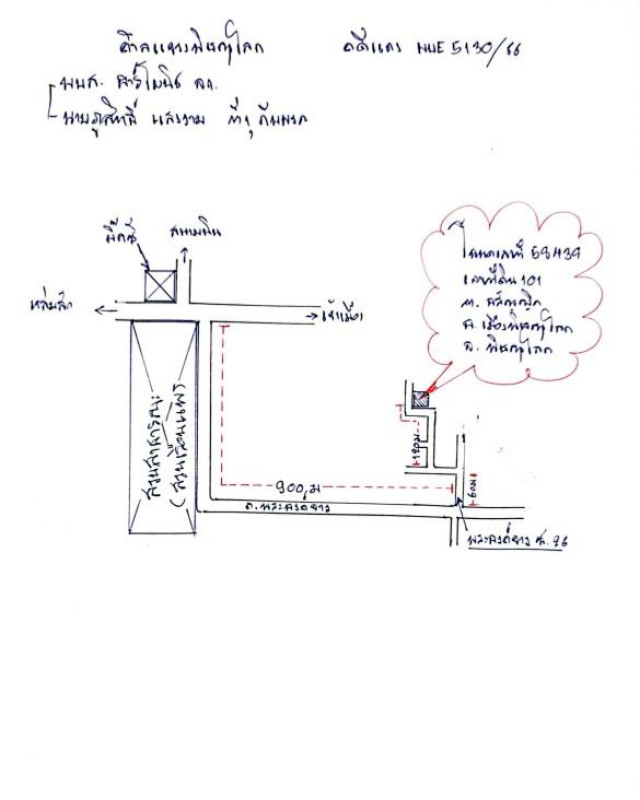 ศาลแขวงพิษณุโลก คดีแดง ผบE 5130/66
บบส. อาร์โมนิซ จก.
นายภูสิทธิ์ แสงงาม
บิ๊กซี
สนามบิน
หล่มสัก
เข้าเมือง
สวนสาธารณะ
(สวนเรือนแพ)
900 ม
ถ.พระองค์ขาว
120 ม
60 ม
พระองค์ขาว ซ. 96
โฉนดเลขที่ 59439
เลขที่ดิน 101
ต. อรัญญิก
อ. เมืองพิษณุโลก
จ. พิษณุโลก